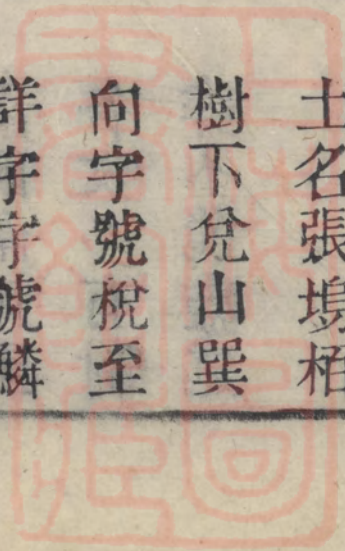 土名張塢栢
樹下兌山巽
向字號稅至
詳字字號鱗